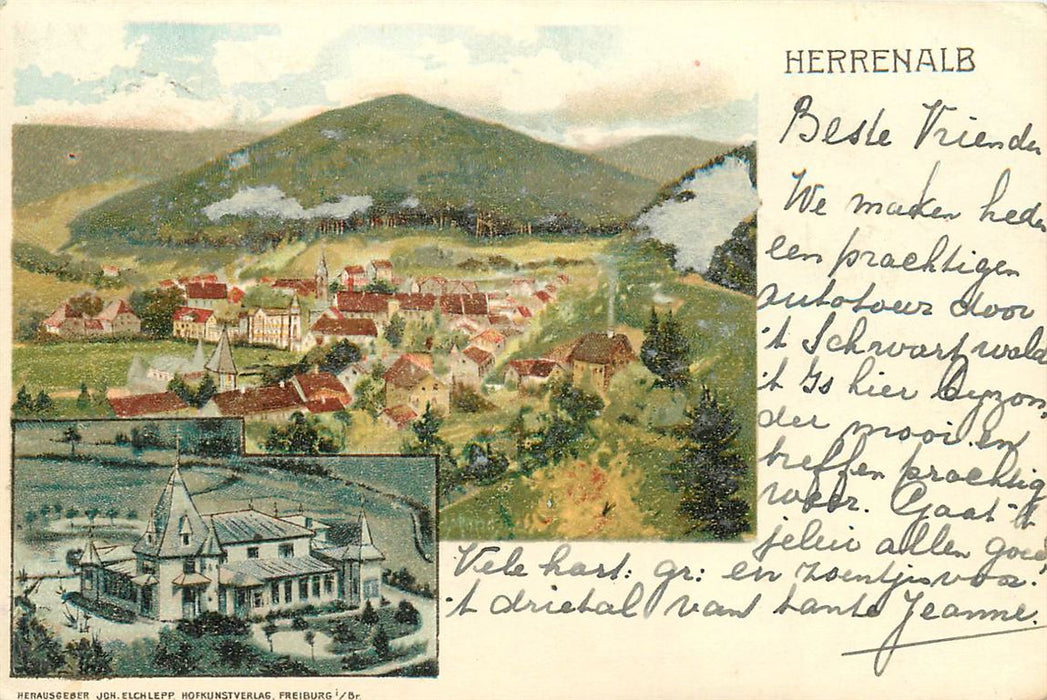 HERRENALB
Beste Vrienden
We maken heden
een prachtigen
autotour door
't Schwartwald
't Is hier byzon,
der mooi en
treffen prachtig
weer. Gaat 't
jelui allen goed
Vele hart: gr: en zoentjes voor
't drietal van tante Jeanne.
HERAUSGEBER JOH. ELCHLEPP HOFKUNSTVERLAG, FREIBURG i/Br.